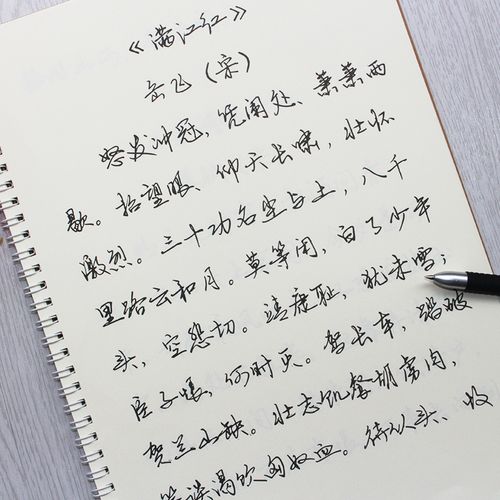 《满江红》
岳飞（宋）
怒发冲冠，凭阑处、萧萧雨
歇。抬望眼、仰天长啸，壮怀
激烈。三十功名尘与土，八千
里路云和月。莫等闲，白了少年
头，空悲切。靖康耻，犹未雪；
臣子恨，何时灭。驾长车，踏破
贺兰山缺。壮志饥餐胡虏肉，
笑谈渴饮匈奴血。待从头、收